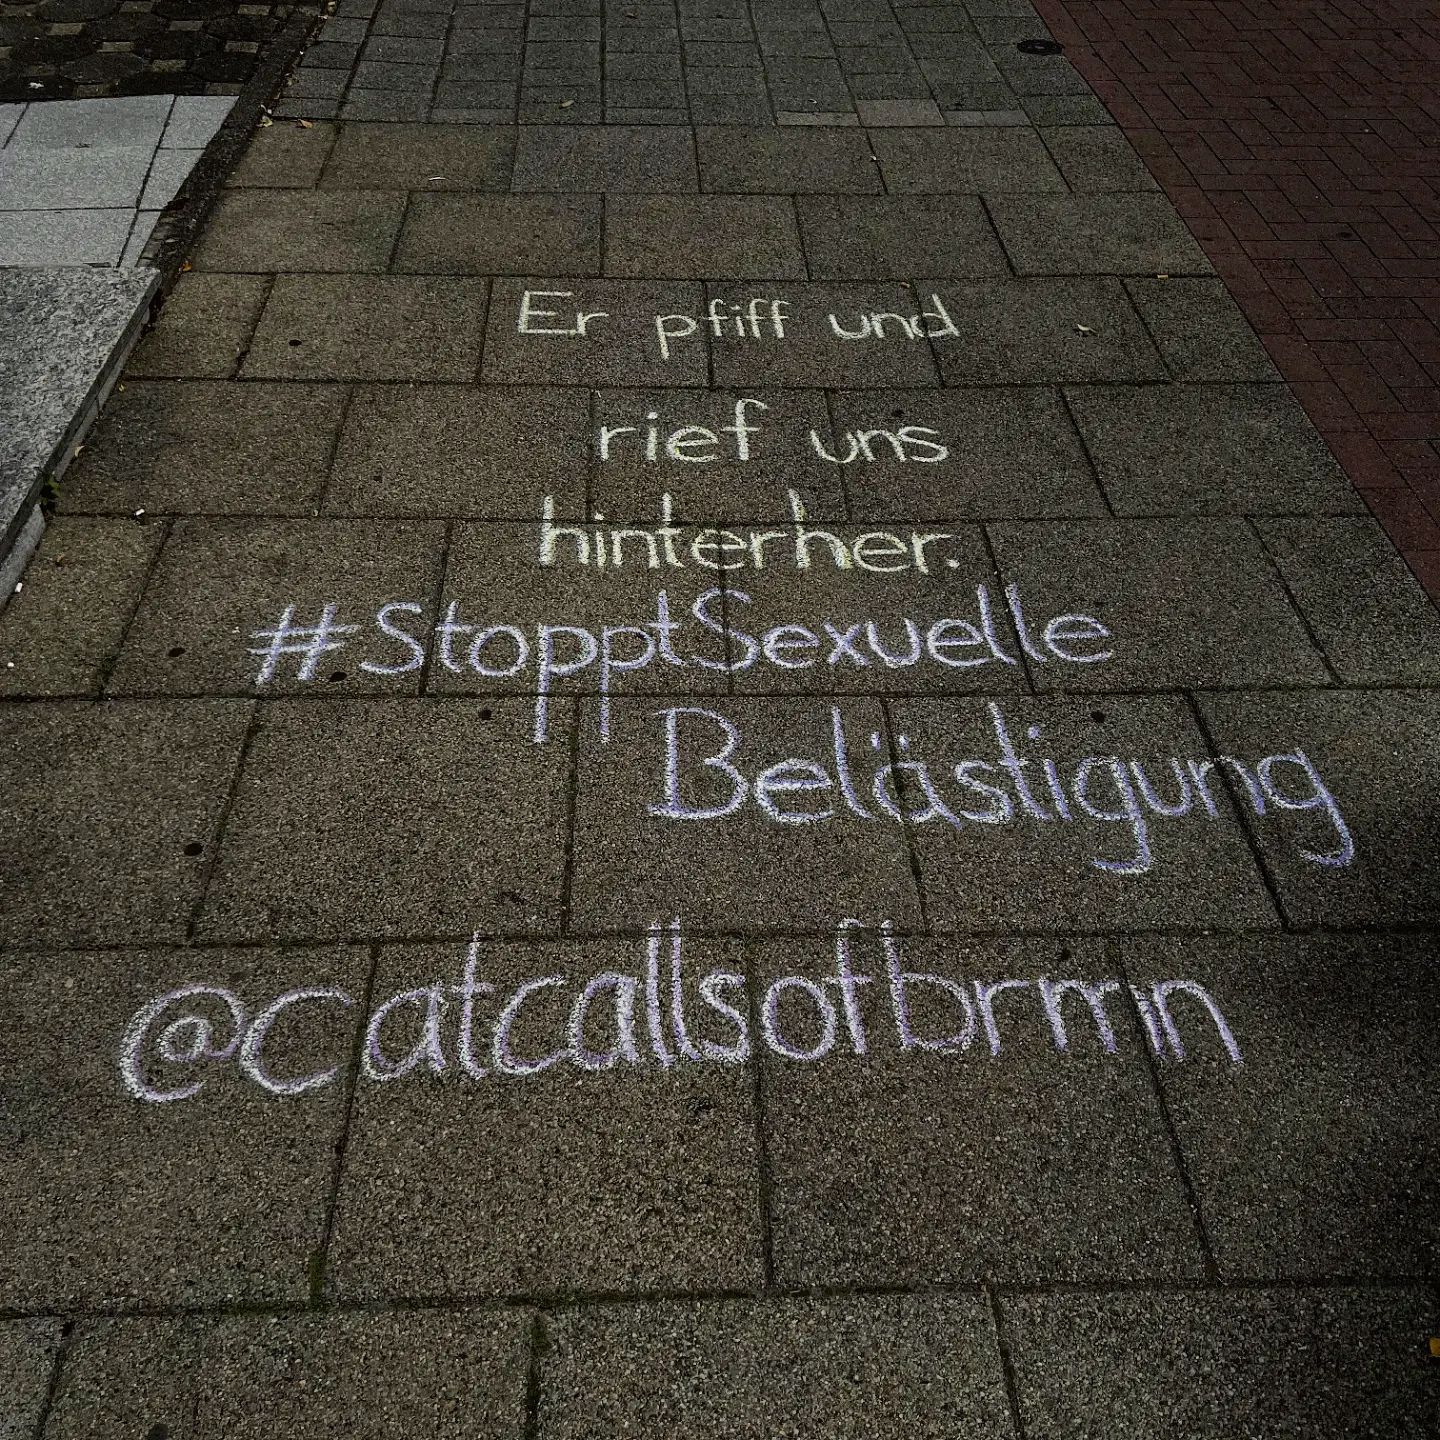 Er pfiff und
rief uns
hinterher.
#StopptSexuelle
Belästigung
@catcallsofbrmn